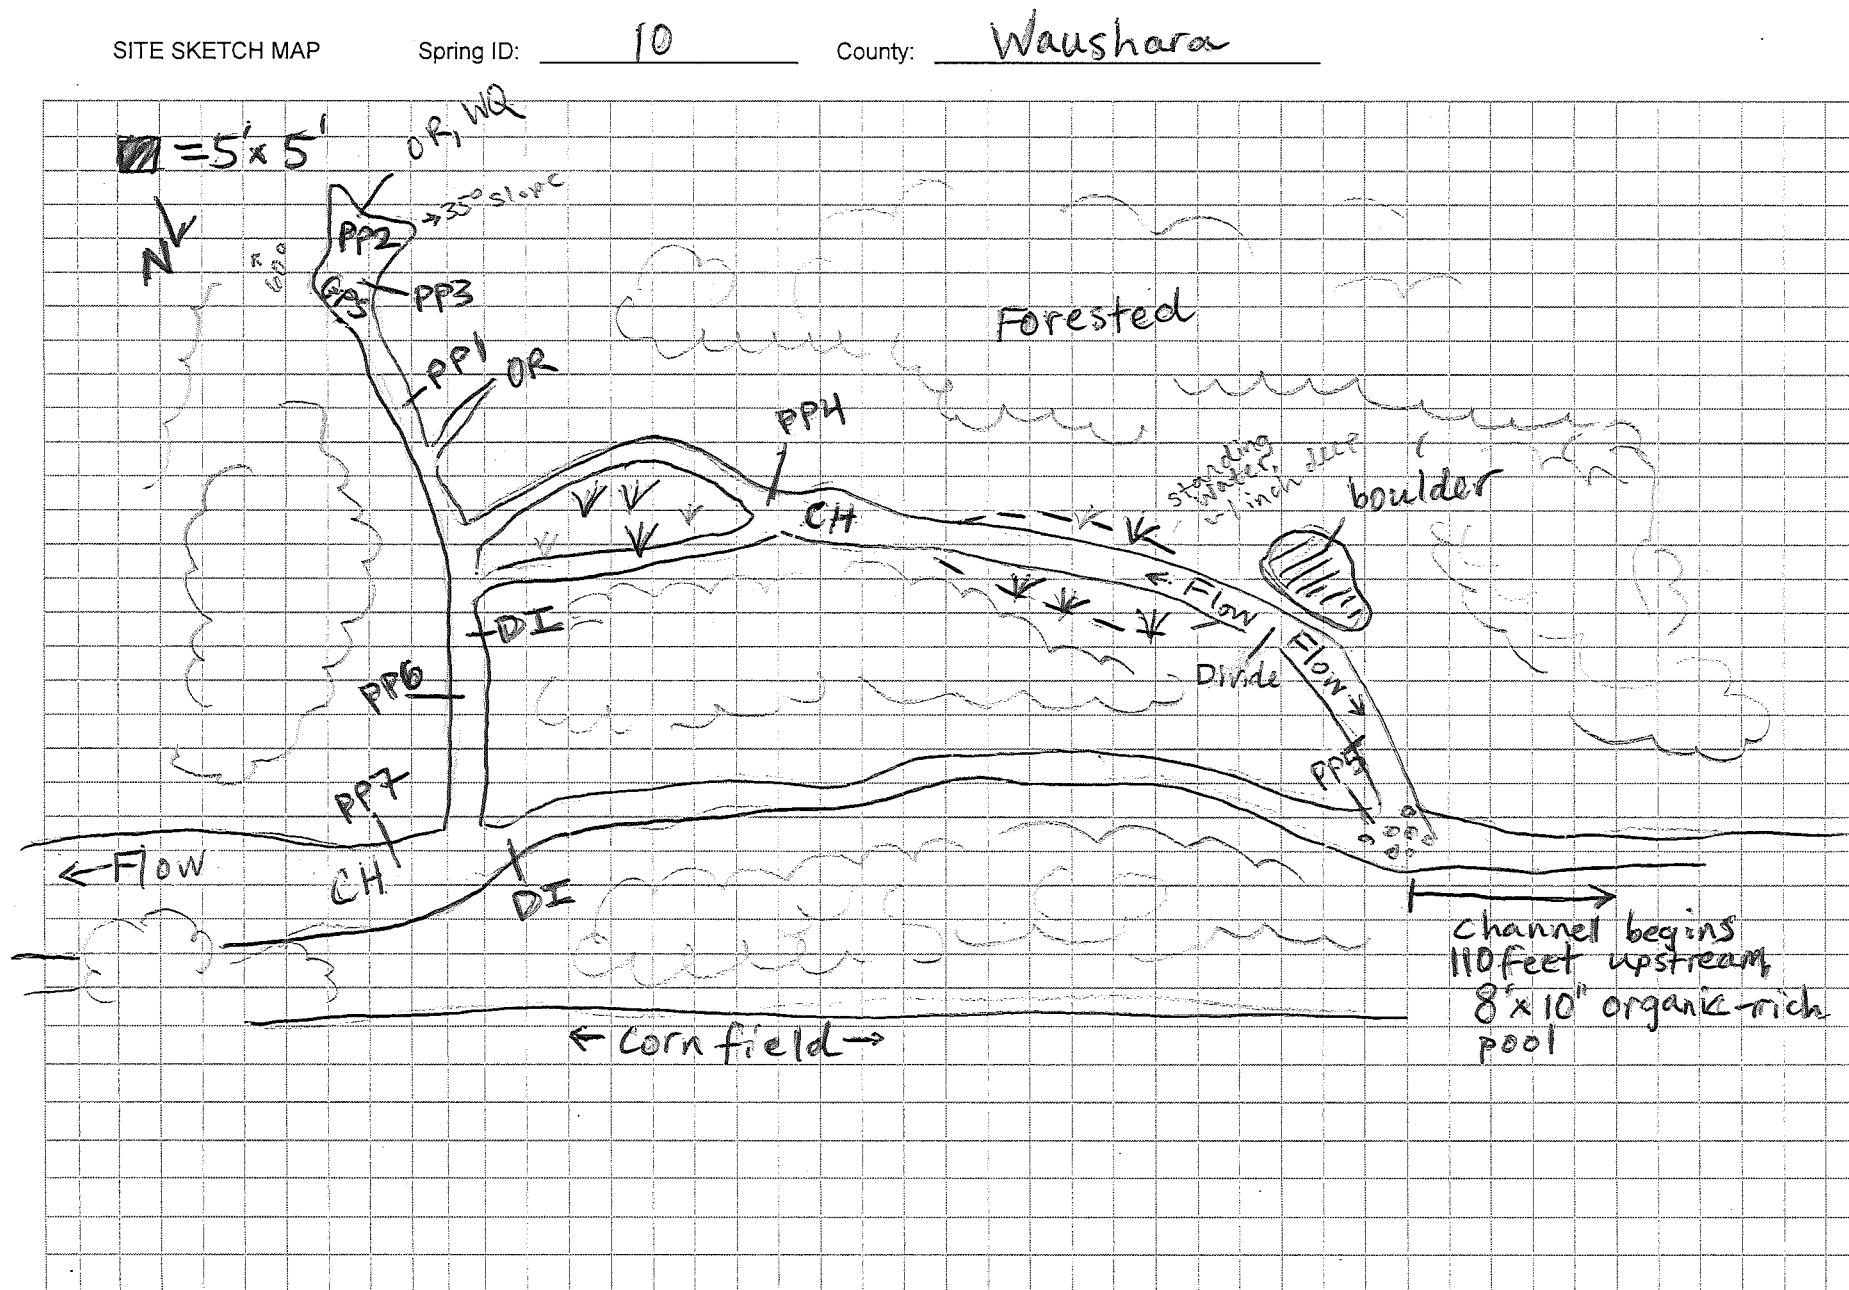 SITE SKETCH MAP Spring ID: 10 County: Waushara
= 5' x 5'
OR, WQ
→35° slope
N
PP2
60°
GPS
PP3
Forested
PP1
OR
PP4
standing
water,
~1 inch deep
boulder
CH
← Flow
DI
Divide
Flow →
PP6
PP5
PP7
← Flow
CH
DI
Channel begins
110 feet upstream,
8' x 10" organic-rich
pool
← Corn field →